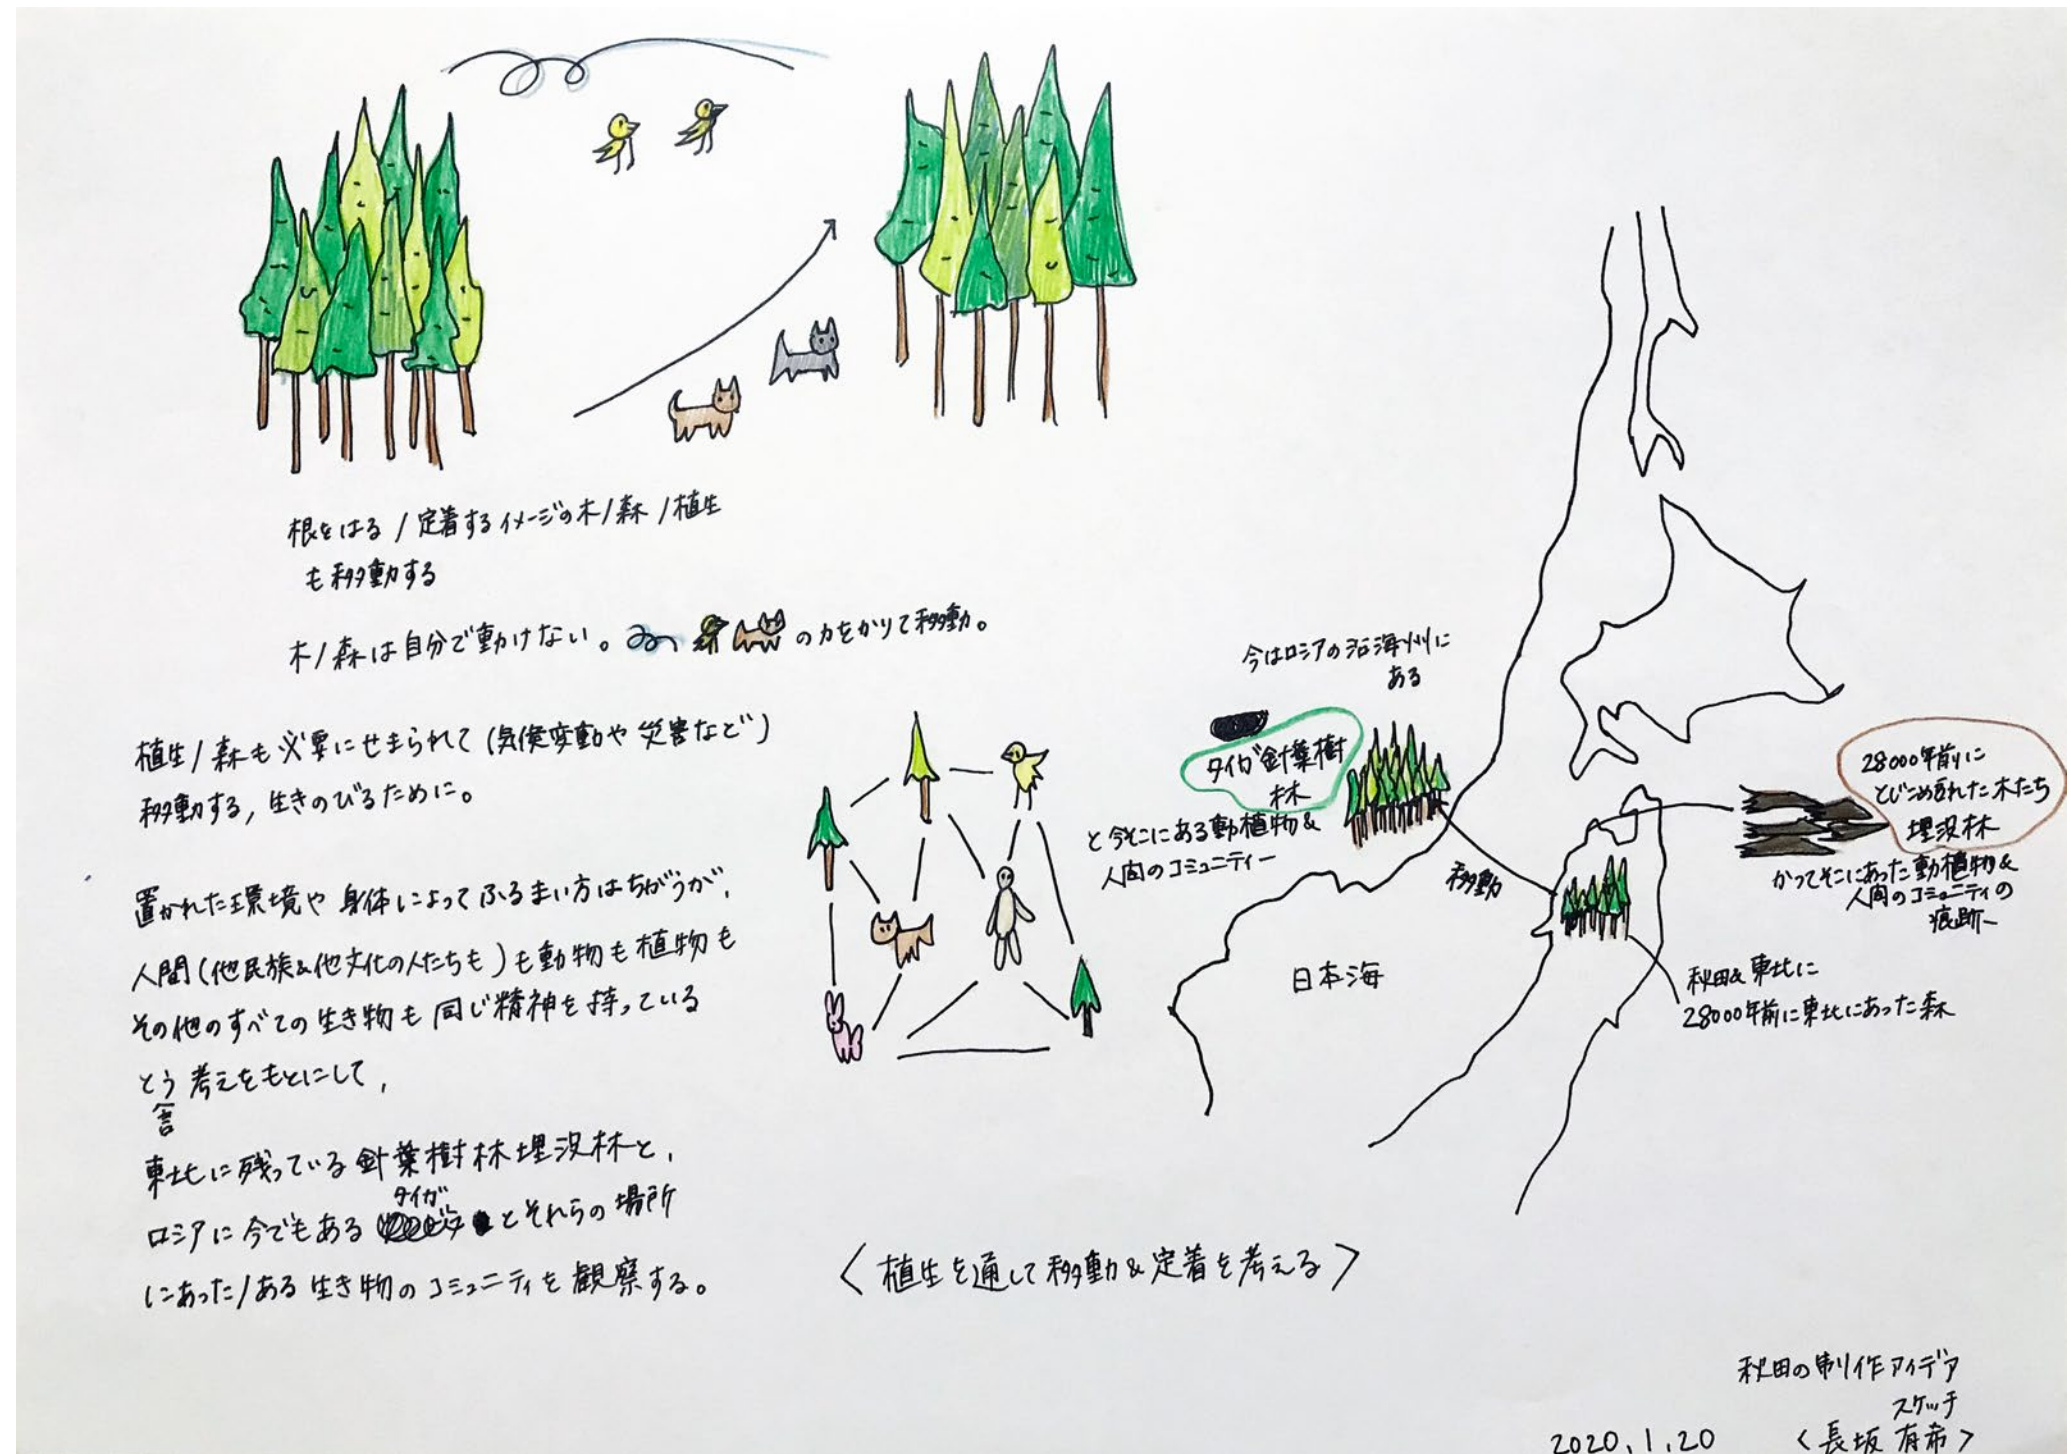 根をはる / 定着するイメージの木/森/植生
も移動する
木/森は自分で動けない。の力をかりて移動。
植生/森も必要にせまられて(気候変動や災害など)
移動する,生きのびるために。
置かれた環境や身体によってふるまい方はちがうが,
人間(他民族&他文化の人たちも)も動物も植物も
その他のすべての生き物も同じ精神を持っている
とう考えをもとにして,
言
東北に残っている針葉樹林埋没林と,
タイガ
ロシアに今でもあるとそれらの場所
にあった/ある生き物のコミュニティを観察する。
今はロシアの沿海州に
ある
タイガ針葉樹
林
と今そこにある動植物&
人間のコミュニティー
移動
日本海
28000年前に
とじこめられた木たち
埋没林
かつてそこにあった動植物&
人間のコミュニティの
痕跡
秋田&東北に
28000年前に東北にあった森
<植生を通して移動&定着を考える>
秋田の制作アイデア
スケッチ
2020,1,20 <長坂 有希>